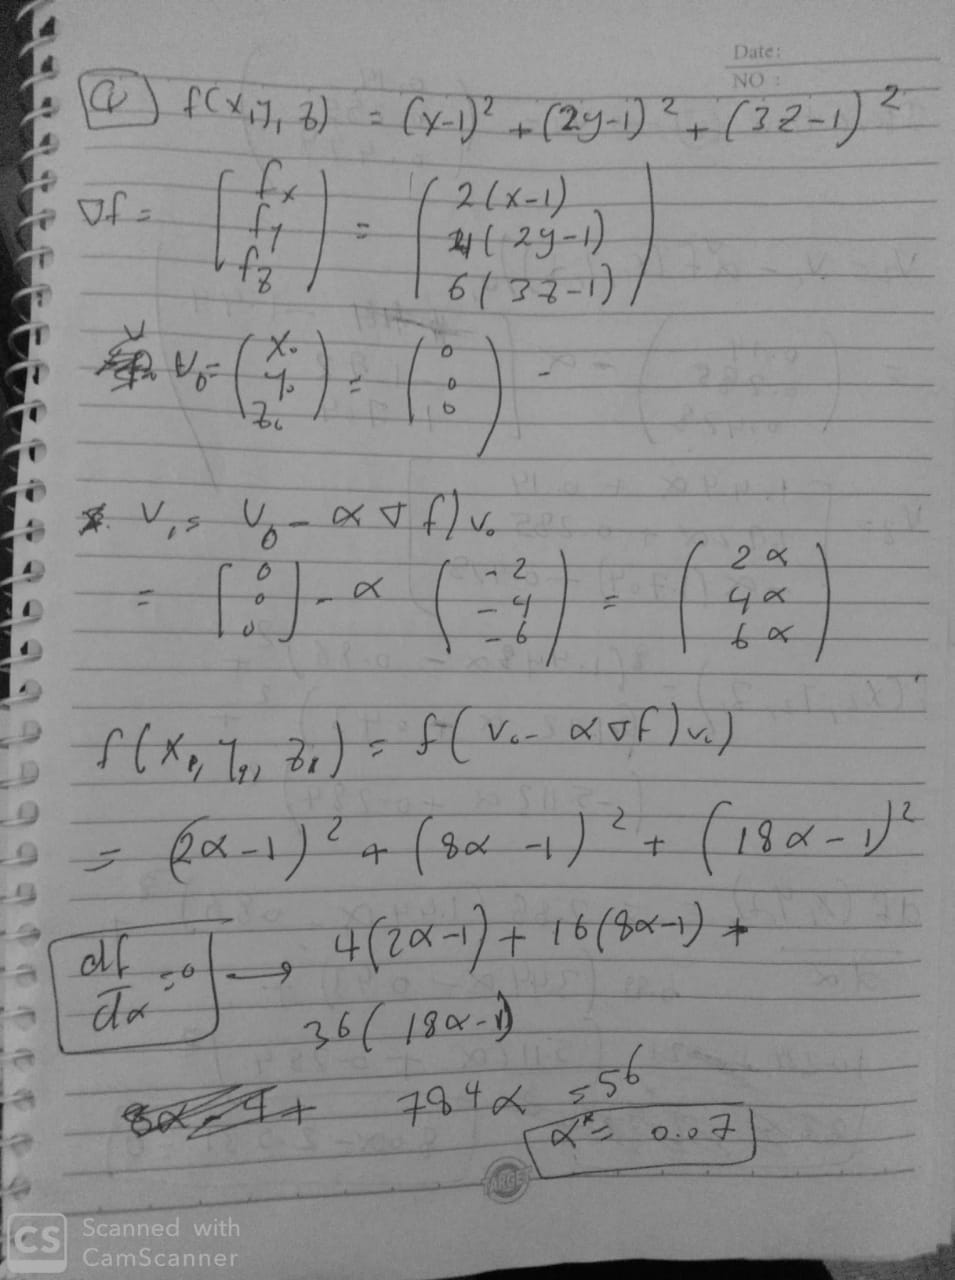 Date:
NO :
Q) f(x,y,z) = (x-1)² + (2y-1)² + (3z-1)²
∇f = [fx fy fz] = (2(x-1) 4(2y-1) 6(3z-1))
V₀ = (x₀ y₀ z₀) = (0 0 0)
V₁ = V₀ - α∇f)v₀
= [0 0 0] - α (-2 -4 -6) = (2α 4α 6α)
f(x₁, y₁, z₁) = f(v₀ - α∇f)v₀)
= (2α-1)² + (8α-1)² + (18α-1)²
df/dα = 0 → 4(2α-1) + 16(8α-1) +
36(18α-1)
784α = 56
α* = 0.07
ARGE
CS Scanned with
CamScanner